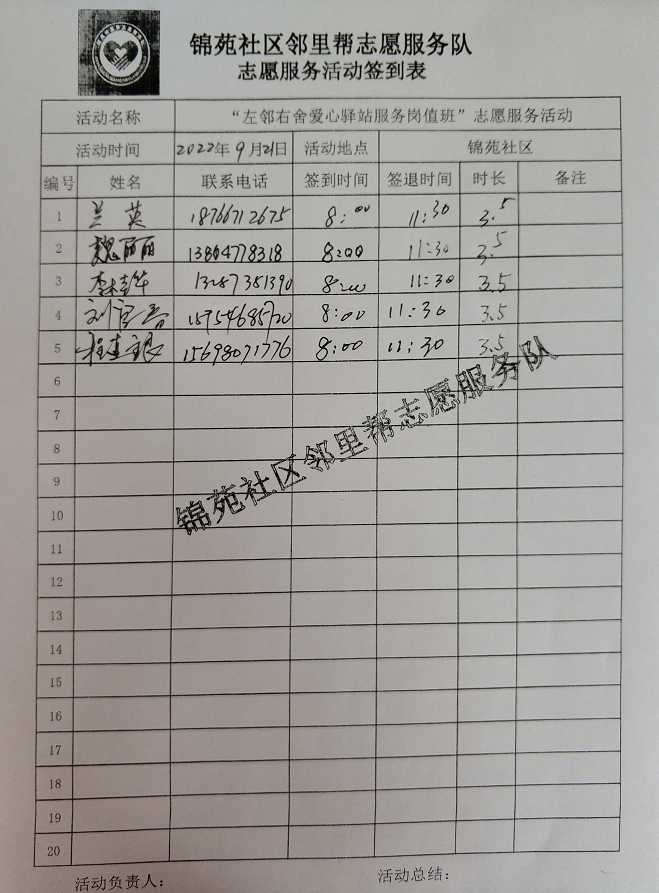 锦苑社区邻里帮志愿服务队
志愿服务活动签到表
活动名称 “左邻右舍爱心驿站服务岗值班”志愿服务活动
活动时间 2022年9月21日 活动地点 锦苑社区
编号 姓名 联系电话 签到时间 签退时间 时长 备注
1 兰英 18766712675 8:00 11:30 3.5
2 魏丽丽 13864778318 8:00 11:30 3.5
3 李桂华 13287381390 8:00 11:30 3.5
4 15954685720 8:00 11:30 3.5
5 15698071776 8:00 11:30 3.5
6
7
8
9
10
11
12
13
14
15
16
17
18
19
20
锦苑社区邻里帮志愿服务队
活动负责人: 活动总结: